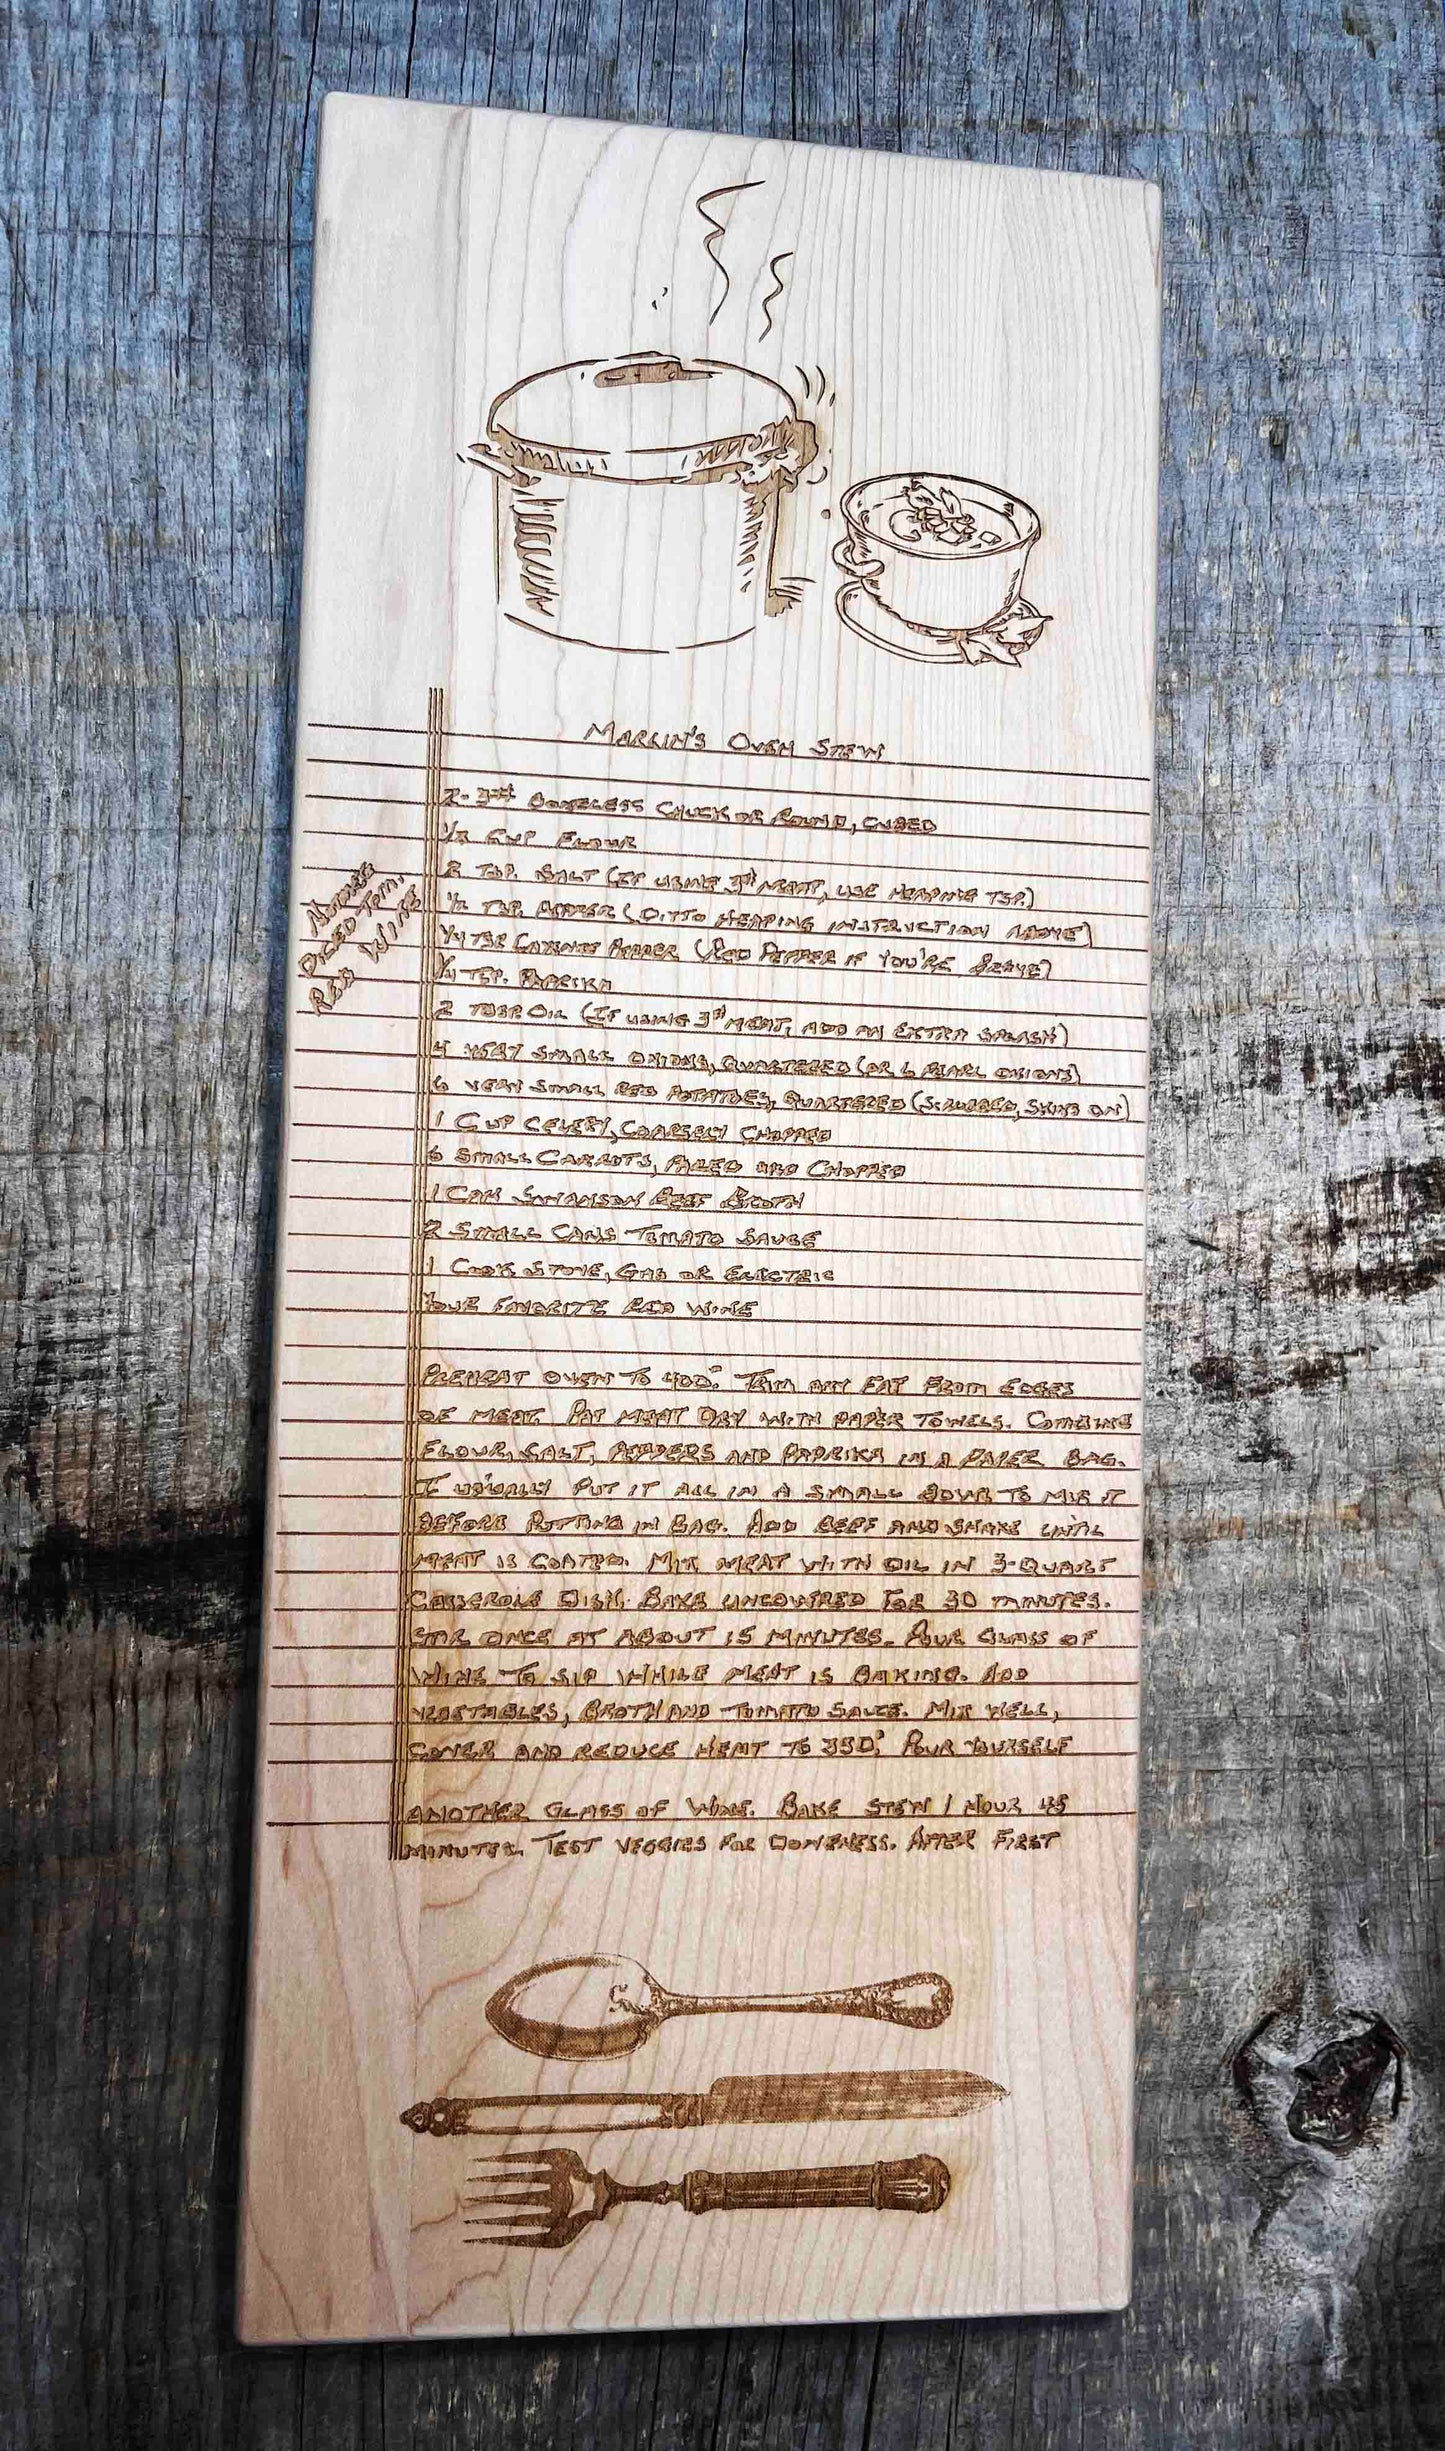 Marlin's Oven Stew
2-3# Boneless Chuck or Round, cubed
1/2 Cup Flour
2 Tsp. Salt (If using 3# meat, use heaping tsp.)
1/2 Tsp. Pepper (Ditto heaping instruction above)
1/4 Tsp Cayenne Pepper (Red Pepper if you're brave)
1/4 Tsp. Paprika
2 Tbsp Oil (If using 3# meat, add an extra splash)
4 very small onions, quartered (or 6 pearl onions)
6 very small red potatoes, quartered (scrubbed, skins on)
1 Cup celery, coarsely chopped
6 small Carrots, pared and chopped
1 Can Swanson Beef Broth
2 Small Cans Tomato Sauce
1 Cook Stove, Gas or Electric
Your favorite red wine
Diced Tom.
Red Wine
Preheat oven to 400°. Trim any fat from edges
of meat. Pat meat dry with paper towels. Combine
flour, salt, peppers and paprika in a paper bag.
I usually put it all in a small bowl to mix it
before putting in bag. Add beef and shake until
meat is coated. Mix meat with oil in 3-quart
casserole dish. Bake uncovered for 30 minutes.
Stir once at about 15 minutes. Pour glass of
wine to sip while meat is baking. Add
vegetables, broth and tomato sauce. Mix well,
cover and reduce heat to 350°. Pour yourself
another glass of wine. Bake stew 1 hour 45
minutes. Test veggies for doneness. After first